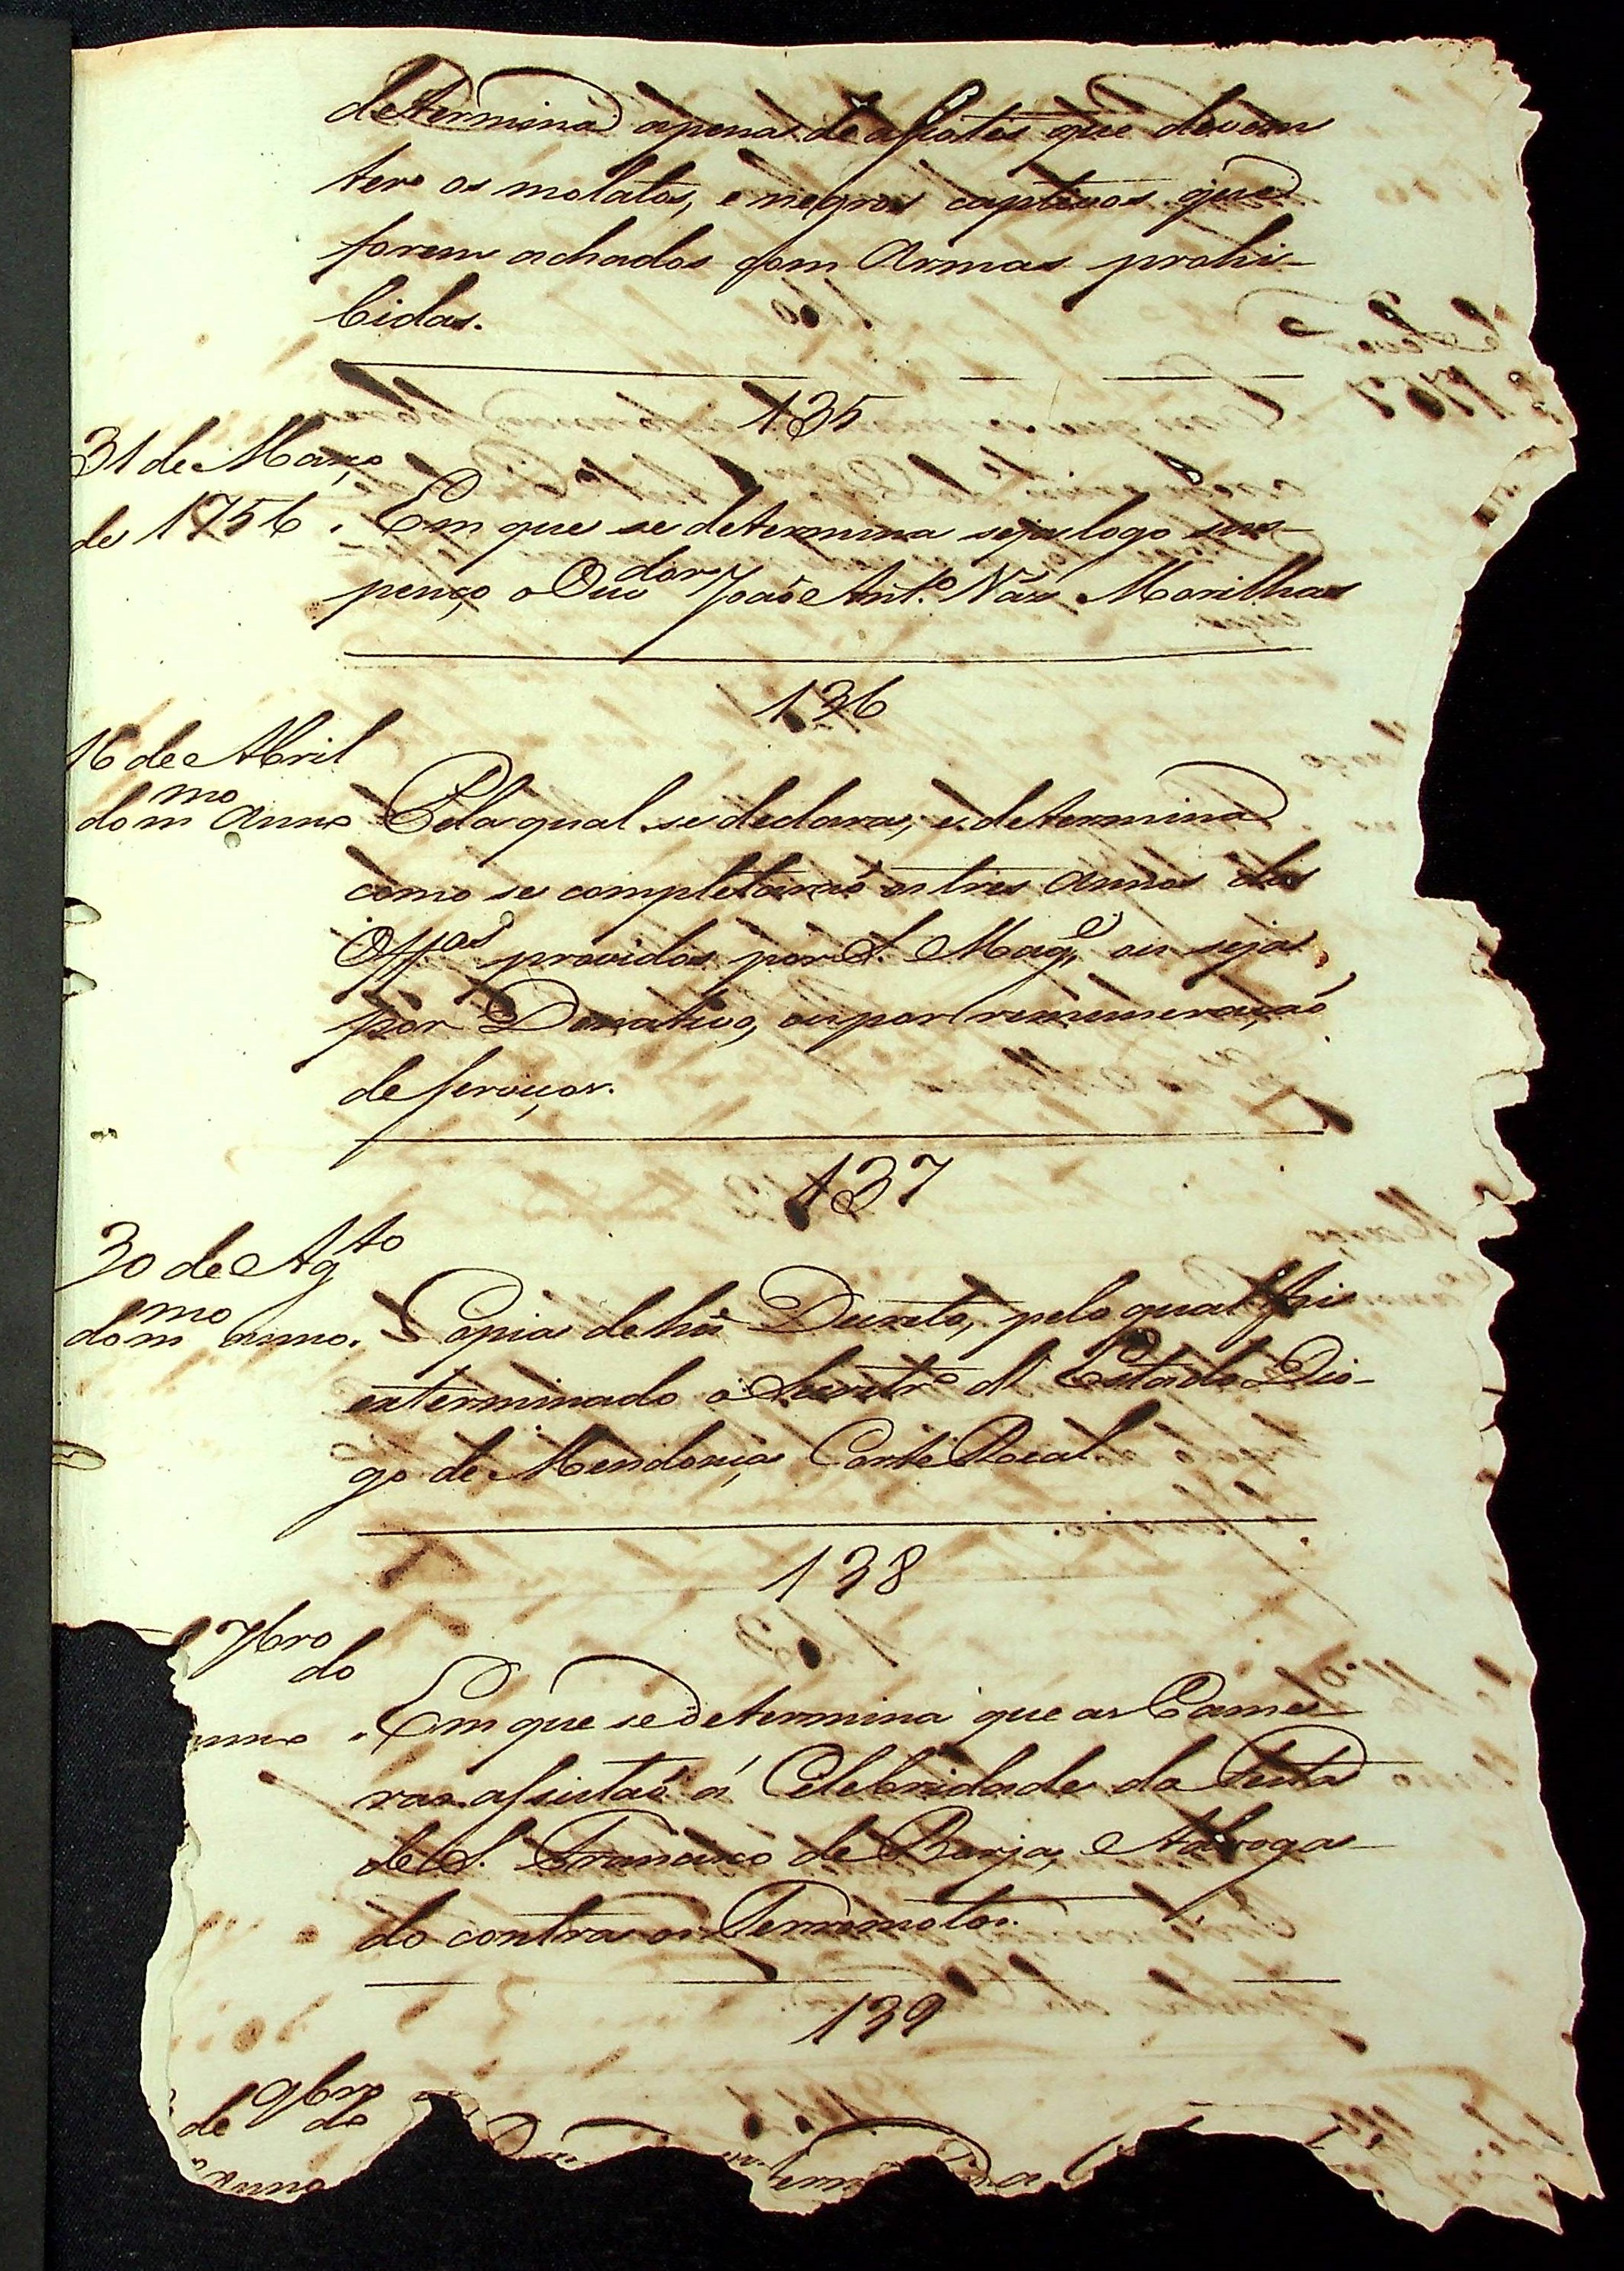 determina apena de asoites que devem
ter os molatos, e negros captivos que
forem achados com Armas prohi-
bidas.
135
31 de Março
de 1756. Em que se determina seja logo sus-
penço o Ouvdor João Anto. Vás Morilhas
136
16 de Abril
do mmo Anno Pela qual se declara, e determina
como se completaraõ os tres annos dos
Offos providos por S. Magde, ou seja
por Donativo, ou por remuneraçaõ
de serviços.
137
30 de Agto
do mmo anno. Copia de hũ Decreto, pelo qual foi
exterminado o Secretro d' Estado Dio-
go de Mendonça Corte Real.
138
7bro
do
anno. Em que se determina que as Came-
ras asistaõ á Celebridade da Festa
de S. Francisco de Borja, Advoga-
do contra os Terremotos.
139
de 9bro do
Anno